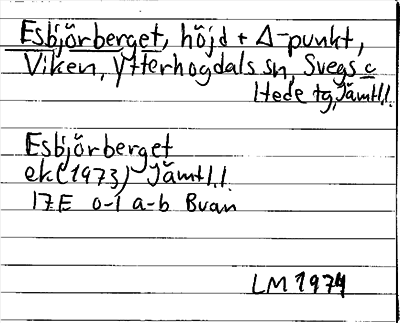 Esbjörberget, höjd + Δ-punkt,
Viken, Ytterhogdals sn, Svegs c
Hede tg, Jämtl.l.
Esbjörberget
ek (1973) Jämtl.l.
17E 0-1 a-b Buan
LM 1974